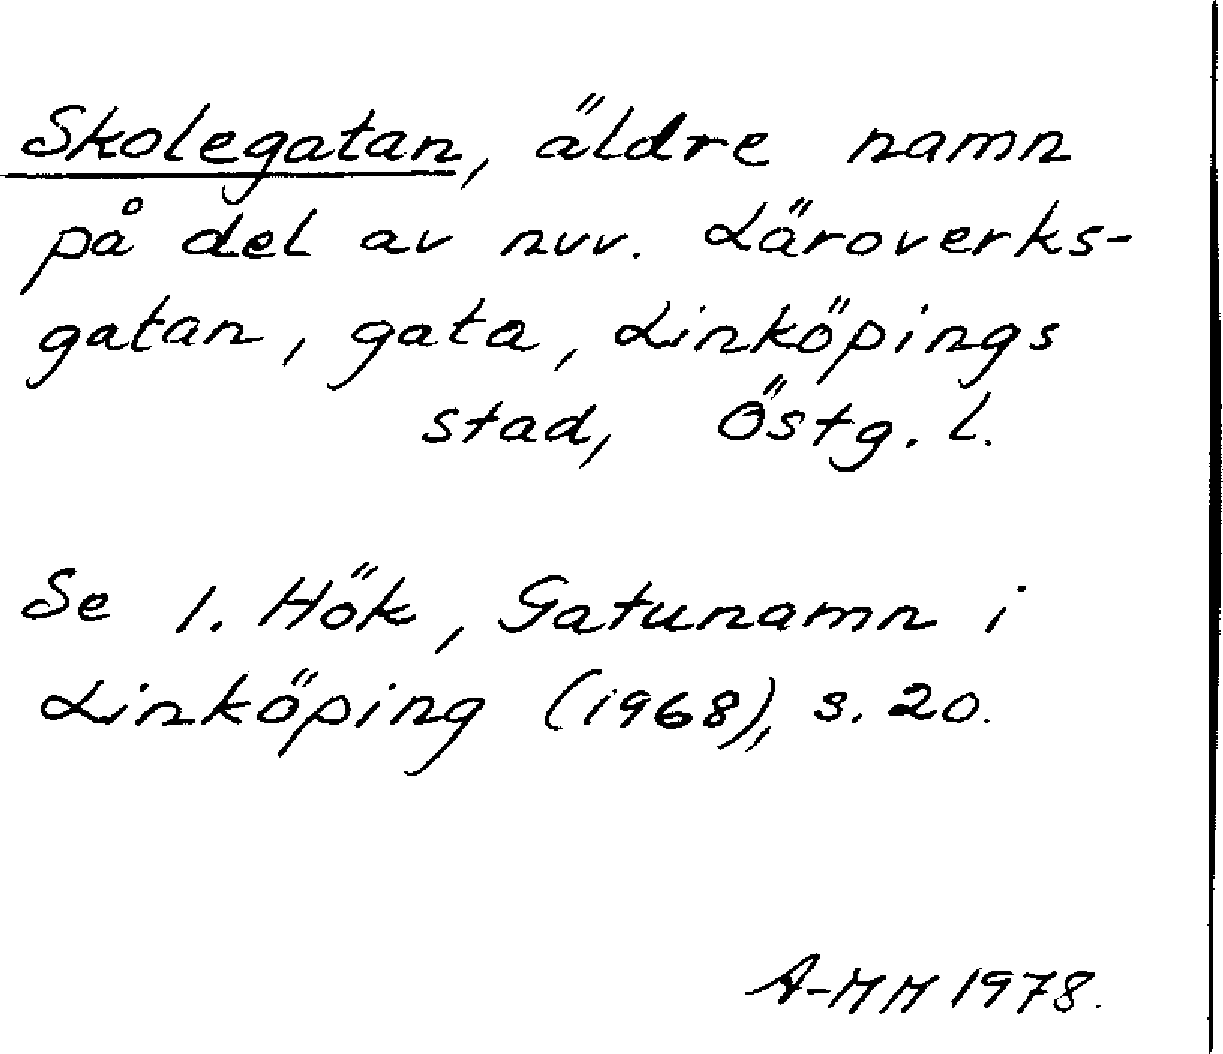 Skolegatan, äldre namn
på del av nuv. Läroverks-
gatan, gata, Linköpings
stad, Östg. l.
Se I. Hök, Gatunamn i
Linköping (1968), s. 20.
A-MM 1978.